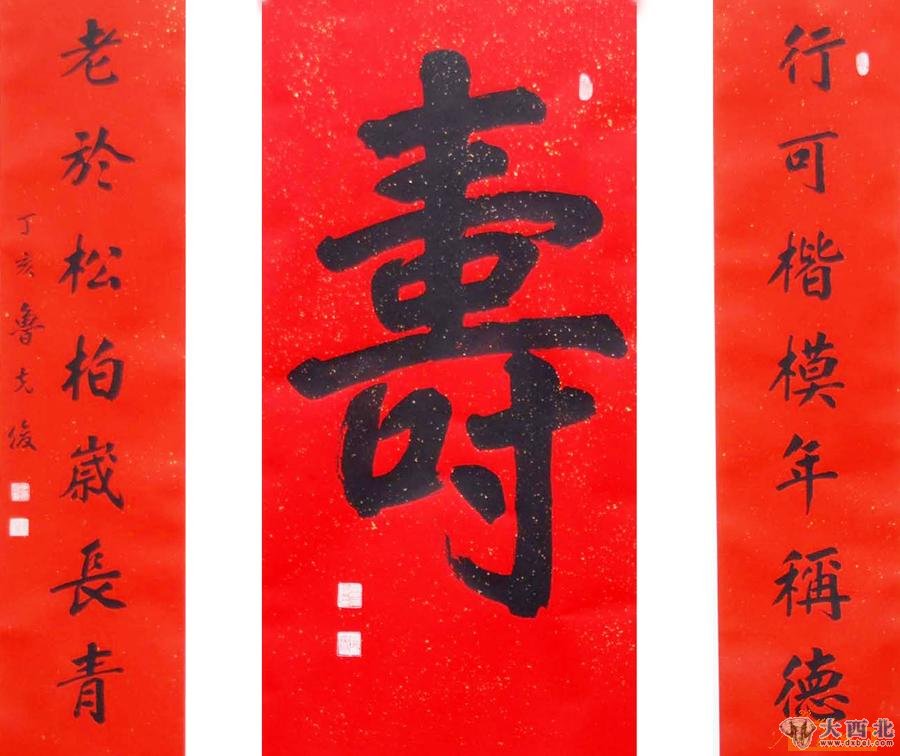 行可楷模年稱德
壽
老於松柏歲長青
丁亥魯克俊
大西北
www.dxbei.com